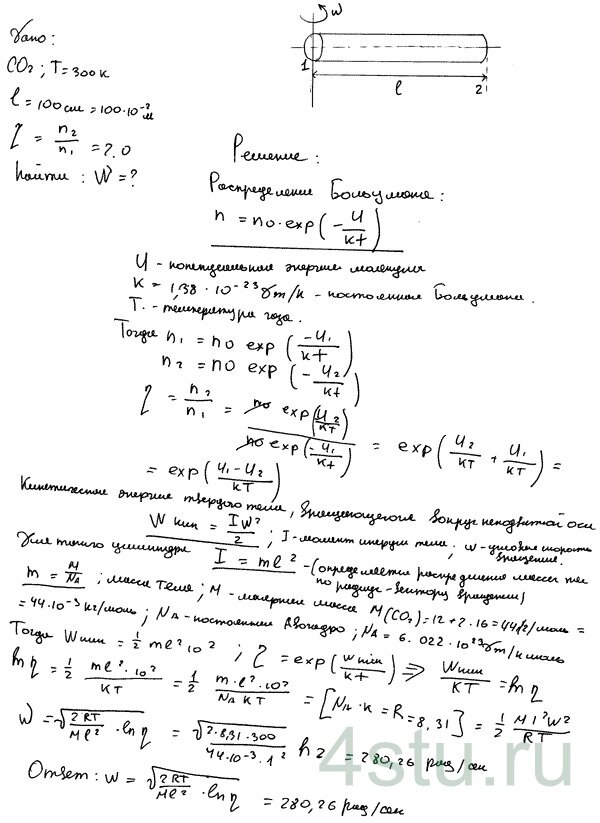 Дано:
CO₂; T=300 к
l = 100 см = 100·10⁻² м
η = n₂/n₁ = 2.0
Найти: W=?
W
1
l
2
Решение:
Распределение Больцмана:
n = n₀·exp(-U/kt)
U - потенциальная энергия молекулы
K = 1,38·10⁻²³ Дж/к - постоянная Больцмана.
T. - температура газа.
Тогда n₁ = n₀ exp(-U₁/kt)
n₂ = n₀ exp(-U₂/kt)
η = n₂/n₁ = n₀ exp(U₂/kT) / n₀ exp(-U₁/kt) = exp(U₂/kT + U₁/kT) =
= exp(U₁-U₂/kT)
Кинетическая энергия твердого тела, вращающегося вокруг неподвижной оси
Wкин = Iw²/2; I-момент инерции тела; w-угловая скорость вращения.
Для тонкого цилиндра I = ml² - (определяется распределения массы тела по радиус-вектору вращения)
m = M/NA; масса тела; M - молярная масса M(CO₂)=12+2·16=44 г/моль =
= 44·10⁻³ кг/моль; NA - постоянная Авогадро; NA = 6.022·10²³
Тогда Wкин = ½ ml²w²; η = exp(Wкин/kt) ⇒ Wкин/KT = ln η
ln η = ½ ml²·w²/KT = ½ m·l²·w²/NA KT = [NA·k = R = 8,31] = ½ Ml²W²/RT
W = √(2RT/Ml²·ln η) = √(2·8,31·300/44·10⁻³·1²) ln 2 = 280,26 рад/сек
Ответ: W = √(2RT/Ml²·ln η) = 280,26 рад/сек
4stu.ru